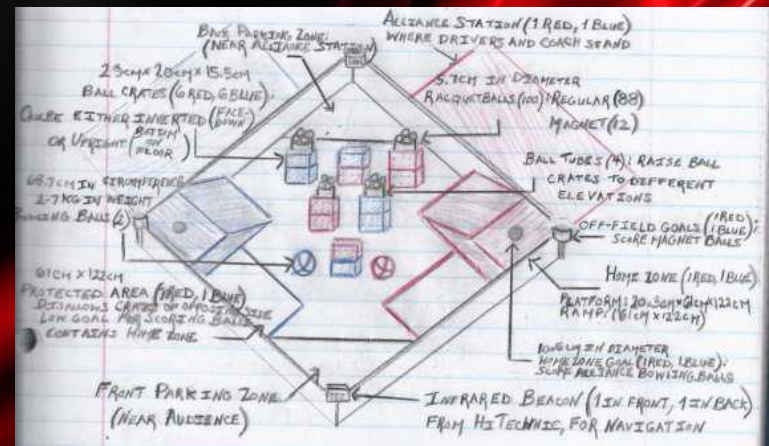 BACK PARKING ZONE:
(NEAR ALLIANCE STATION)
ALLIANCE STATION (1 RED, 1 BLUE)
WHERE DRIVERS AND COACH STAND
23CM × 20CM × 15.5CM
BALL CRATES (6 RED, 6 BLUE):
EITHER INVERTED (FACE-DOWN)
OR UPRIGHT (BOTTOM ON FLOOR)
5.7CM IN DIAMETER
RACQUETBALLS (100): REGULAR (88)
MAGNET (12)
BALL TUBES (4): RAISE BALL
CRATES TO DIFFERENT
ELEVATIONS
68.7CM IN CIRCUMFERENCE
2.7 KG IN WEIGHT
BOWLING BALLS (2)
OFF-FIELD GOALS (1 RED, 1 BLUE):
SCORE MAGNET BALLS
61CM × 122CM
PROTECTED AREA (1 RED, 1 BLUE)
DISALLOWS CRATES OF OPPOSING SIDE
LOW GOAL FOR SCORING BALLS
CONTAINS HOME ZONE
HOME ZONE (1 RED, 1 BLUE)
PLATFORM: 20.3CM × 61CM × 122CM
RAMP: (61CM × 122CM)
IN DIAMETER
HOME ZONE GOAL (1 RED, 1 BLUE):
SCORE ALLIANCE BOWLING BALLS
FRONT PARKING ZONE
(NEAR AUDIENCE)
INFRARED BEACON (1 IN FRONT, 1 IN BACK)
FROM HITECHNIC, FOR NAVIGATION